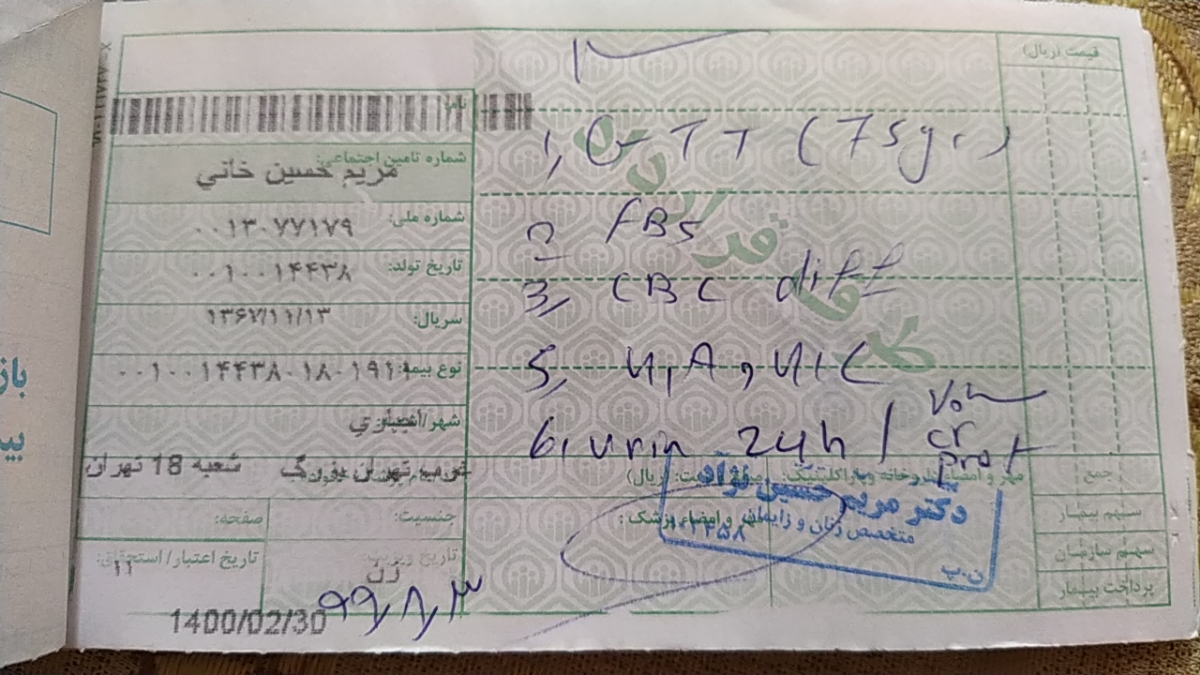 قیمت (ریال)
نام:
شماره تامین اجتماعی:
مریم حسین خانی
شماره ملی:
۰۰۱۳۰۷۷۱۷۹
تاریخ تولد:
۰۰۱۰۰۱۴۴۳۸
سریال:
۱۳۶۷/۱۱/۱۳
نوع بیمه:
۰۰۱۰۰۱۴۴۳۸۰۱۸۰۱۹۱۱
شهر/
اجباری
غرب تهران بزرگ
شعبه 18 تهران
جنسیت:
صفحه:
زن
۱۱
تاریخ ویزیت:
تاریخ اعتبار/ استحقاق:
1400/02/30
۹۹/۸/۳
1, GTT (75gr)
2 FBS
3, CBC diff
5, U/A, U/C
6, urin 24h / Vol
cr
Prot
مهر و امضاء داروخانه و پاراکلینیک:
قیمت: (ریال)
مهر و امضاء پزشک:
دکتر مریم حسین نژاد
متخصص زنان و زایمان
ن.پ
جمع
سهم بیمار
سهم سازمان
پرداخت بیمار
باز
بی